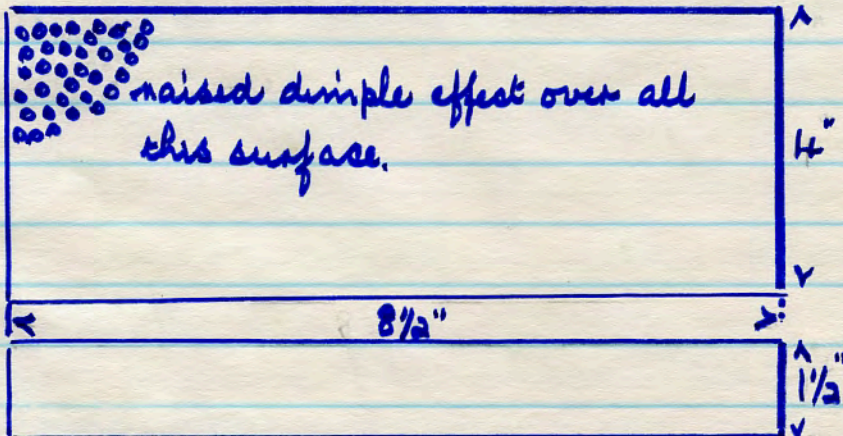 raised dimple effect over all
this surface.
4"
8½"
1½"